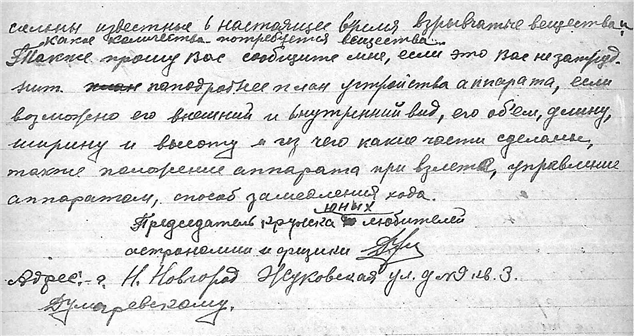 сильны известные в настоящее время взрывчатые вещества и
какое количество потребуется вещества...
Также прошу Вас сообщите мне, если это Вас не затруд-
нит поподробнее план устройства аппарата, если
возможно его внешний и внутренний вид, его об'ем, длину,
ширину и высоту и из чего какие части сделаны,
также положение аппарата при взлете, управление
аппаратом, способ замедления хода.
юных
Председатель кружка любителей
астрономии и физики
Адрес:- г. Н. Новгород Жуковская ул. д №9 кв. 3.